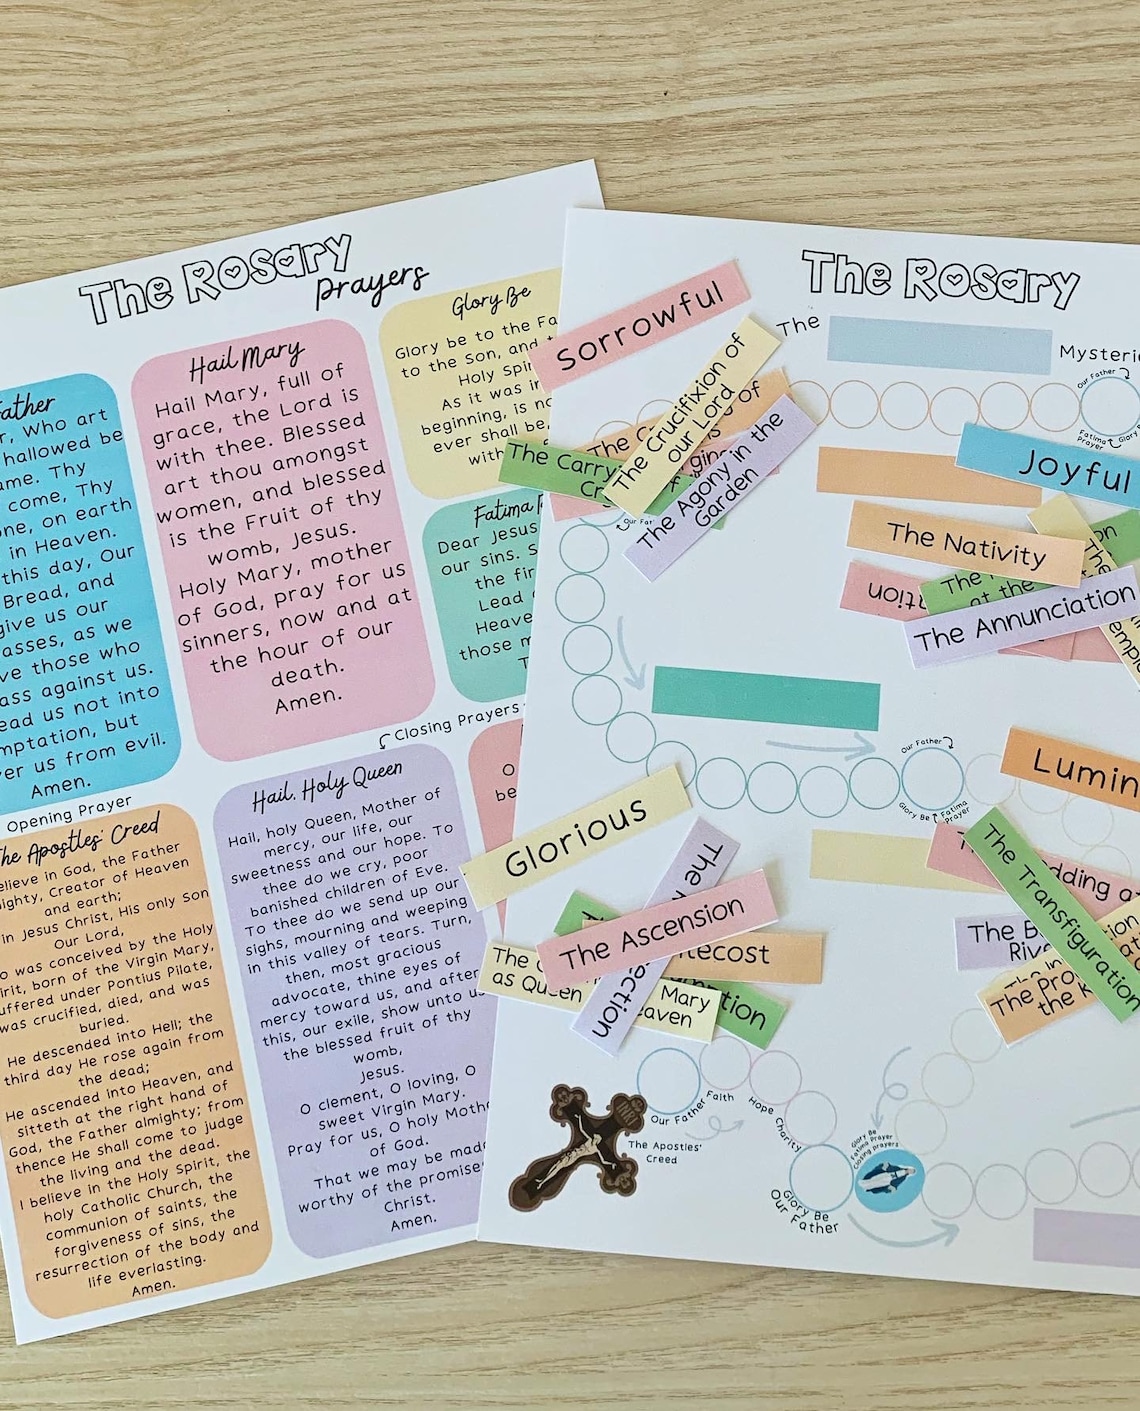 The Rosary
Prayers
Father
Who art
hallowed be
Thy
come, Thy
on earth
in Heaven.
this day, Our
Bread, and
give us our
as we
those who
against us.
us not into
but
us from evil.
Amen.
Hail Mary
Hail Mary, full of
grace, the Lord is
with thee. Blessed
art thou amongst
women, and blessed
is the Fruit of thy
womb, Jesus.
Holy Mary, mother
of God, pray for us
sinners, now and at
the hour of our
death.
Amen.
Glory Be
Glory be to the Fa
to the Son, and
Holy Spir
As it was in
beginning, is no
ever shall be,
with
Fatima
Dear Jesus
our sins. S
the fir
Lead
Heave
those m
Closing Prayers
Opening Prayer
The Apostles' Creed
believe in God, the Father
Creator of Heaven
and earth;
in Jesus Christ, His only son
Our Lord,
was conceived by the Holy
born of the Virgin Mary,
suffered under Pontius Pilate,
was crucified, died, and was
buried.
He descended into Hell; the
third day He rose again from
the dead;
He ascended into Heaven, and
sitteth at the right hand of
God, the Father almighty; from
thence He shall come to judge
the living and the dead.
I believe in the Holy Spirit, the
holy Catholic Church, the
communion of saints, the
forgiveness of sins, the
resurrection of the body and
life everlasting.
Amen.
Hail, Holy Queen
Hail, holy Queen, Mother of
mercy, our life, our
sweetness and our hope. To
thee do we cry, poor
banished children of Eve.
To thee do we send up our
sighs, mourning and weeping
in this valley of tears. Turn,
then, most gracious
advocate, thine eyes of
mercy toward us, and after
this, our exile, show unto us
the blessed fruit of thy
womb,
Jesus.
O clement, O loving, O
sweet Virgin Mary.
Pray for us, O holy Mothe
of God.
That we may be made
worthy of the promise
Christ.
Amen.
O
be
The Rosary
The
Mysterie
Our Father
Fatima Prayer
Glory B
Sorrowful
The Crucifixion of
our Lord
The Carry
The Agony in the
Garden
Joyful
The Nativity
The
at the
The Annunciation
Our Father
Glory Be
Fatima
Prayer
Lumin
Glorious
The Ascension
The
as Queen
Mary
The Transfiguration
The B
The Pro
the K
Our Father
Faith
Hope
Charity
The Apostles'
Creed
Glory Be
Our Father
Glory Be
Fatima Prayer
Closing prayers
INRI